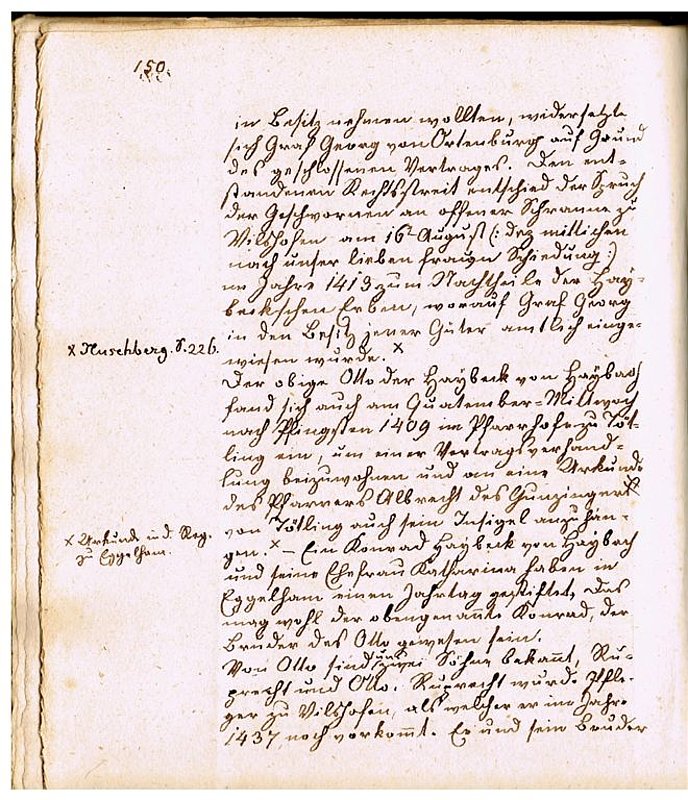 150.
in Besitz nehmen wollten, widersetzte
sich Graf Georg von Ortenburg auf Grund
des geschlossenen Vertrages. Den ent-
standenen Rechtsstreit entschied der Spruch
der Geschwornen an offener Schranne zu
Vilshofen am 16t August (: dez mittichen
nach unser lieben fraun Schiedung :)
im Jahre 1413 zum Nachtheile der Hay-
beckschen Erben, worauf Graf Georg
in den Besitz jener Güter amtlich einge-
wiesen wurde. x
x Huschberg. S. 226.
Der obige Otto der Haybeck von Haybach
fand sich auch am Quatember-Mittwoch
nach Pfingsten 1409 im Pfarrhofe zu Töt-
ling ein, um einer Vertragsverhand-
lung beizuwohnen und an eine Urkunde
des Pfarrers Albrecht des Gunzinger
von Tötling auch sein Insigel anzuhän-
gen. x – Ein Konrad Haybeck von Haybach
x Urkunde in d. Reg.
zu Eggelham.
und seine Ehefrau Katharina haben in
Eggelham einen Jahrtag gestiftet, Das
mag wohl der obengenannte Konrad, der
Bruder des Otto gewesen sein.
Von Otto sind uns zwei Söhne bekannt, Ru-
precht und Otto. Ruprecht wurde Pfle-
ger zu Vilshofen, als welcher er im Jahre
1437 noch vorkommt. Er und sein Bruder